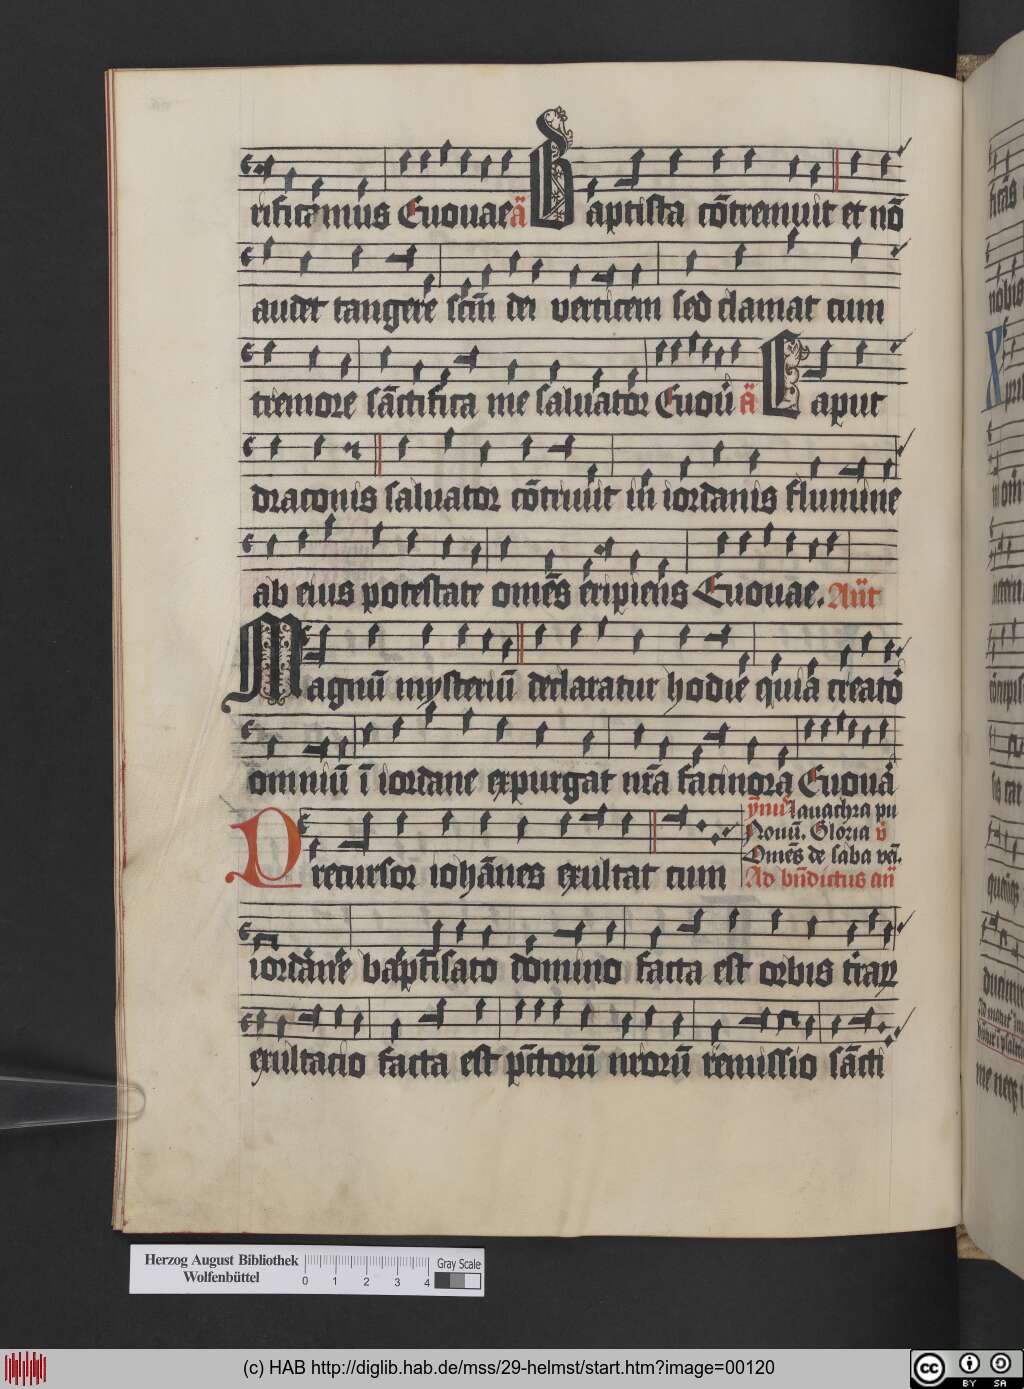 rificamus Euouae ā Baptista cōtremuit et nō
audet tangere scm̄ dei verticem sed clamat cum
tremore sāctifica me saluator Euou ā Caput
draconis saluator cōtriuit in iordanis flumine
ab eius potestate om̄es eripiens Euouae. An̄t
Magnū mysteriū declaratur hodie quia creato
omniū ī iordane expurgat nr̄a facinora Euoua
ȳnus lauachra pu
Nouū. Gloria v̄
Om̄es de saba ven̄.
Precursor iohānes exultat cum Ad bn̄dictus an̄
iordane baptisato domino facta est orbis terraꝝ
exultacio facta est pc̄torū nrorū remissio sācti
Herzog August Bibliothek
Wolfenbüttel
0 1 2 3 4
Gray Scale
(c) HAB http://diglib.hab.de/mss/29-helmst/start.htm?image=00120
cc BY SA